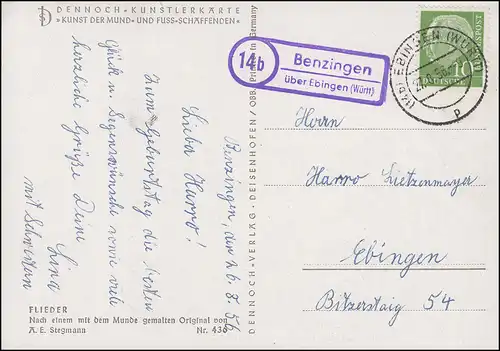 DENNOCH - KUNSTLERKARTE
»KUNST DER MUND- UND FUSS-SCHAFFENDEN«
Benzingen, den 26. 8. 56
Lieber Harro!
Zum Geburtstag die besten
Glück u. Segenswünsche sowie viele
herzliche Grüße Deine
Lina
mit Schwestern
FLIEDER
Nach einem mit dem Munde gemalten Original von
A. E. Stegmann Nr. 436
DENNOCH-VERLAG - DEISENHOFEN / OBB. Printed in Germany
14b
Benzingen
über Ebingen (Württ)
EBINGEN (WÜRTT)
p
10
POST
Herrn
Harro Lietzenmayer
Ebingen
Bitzersteig 54